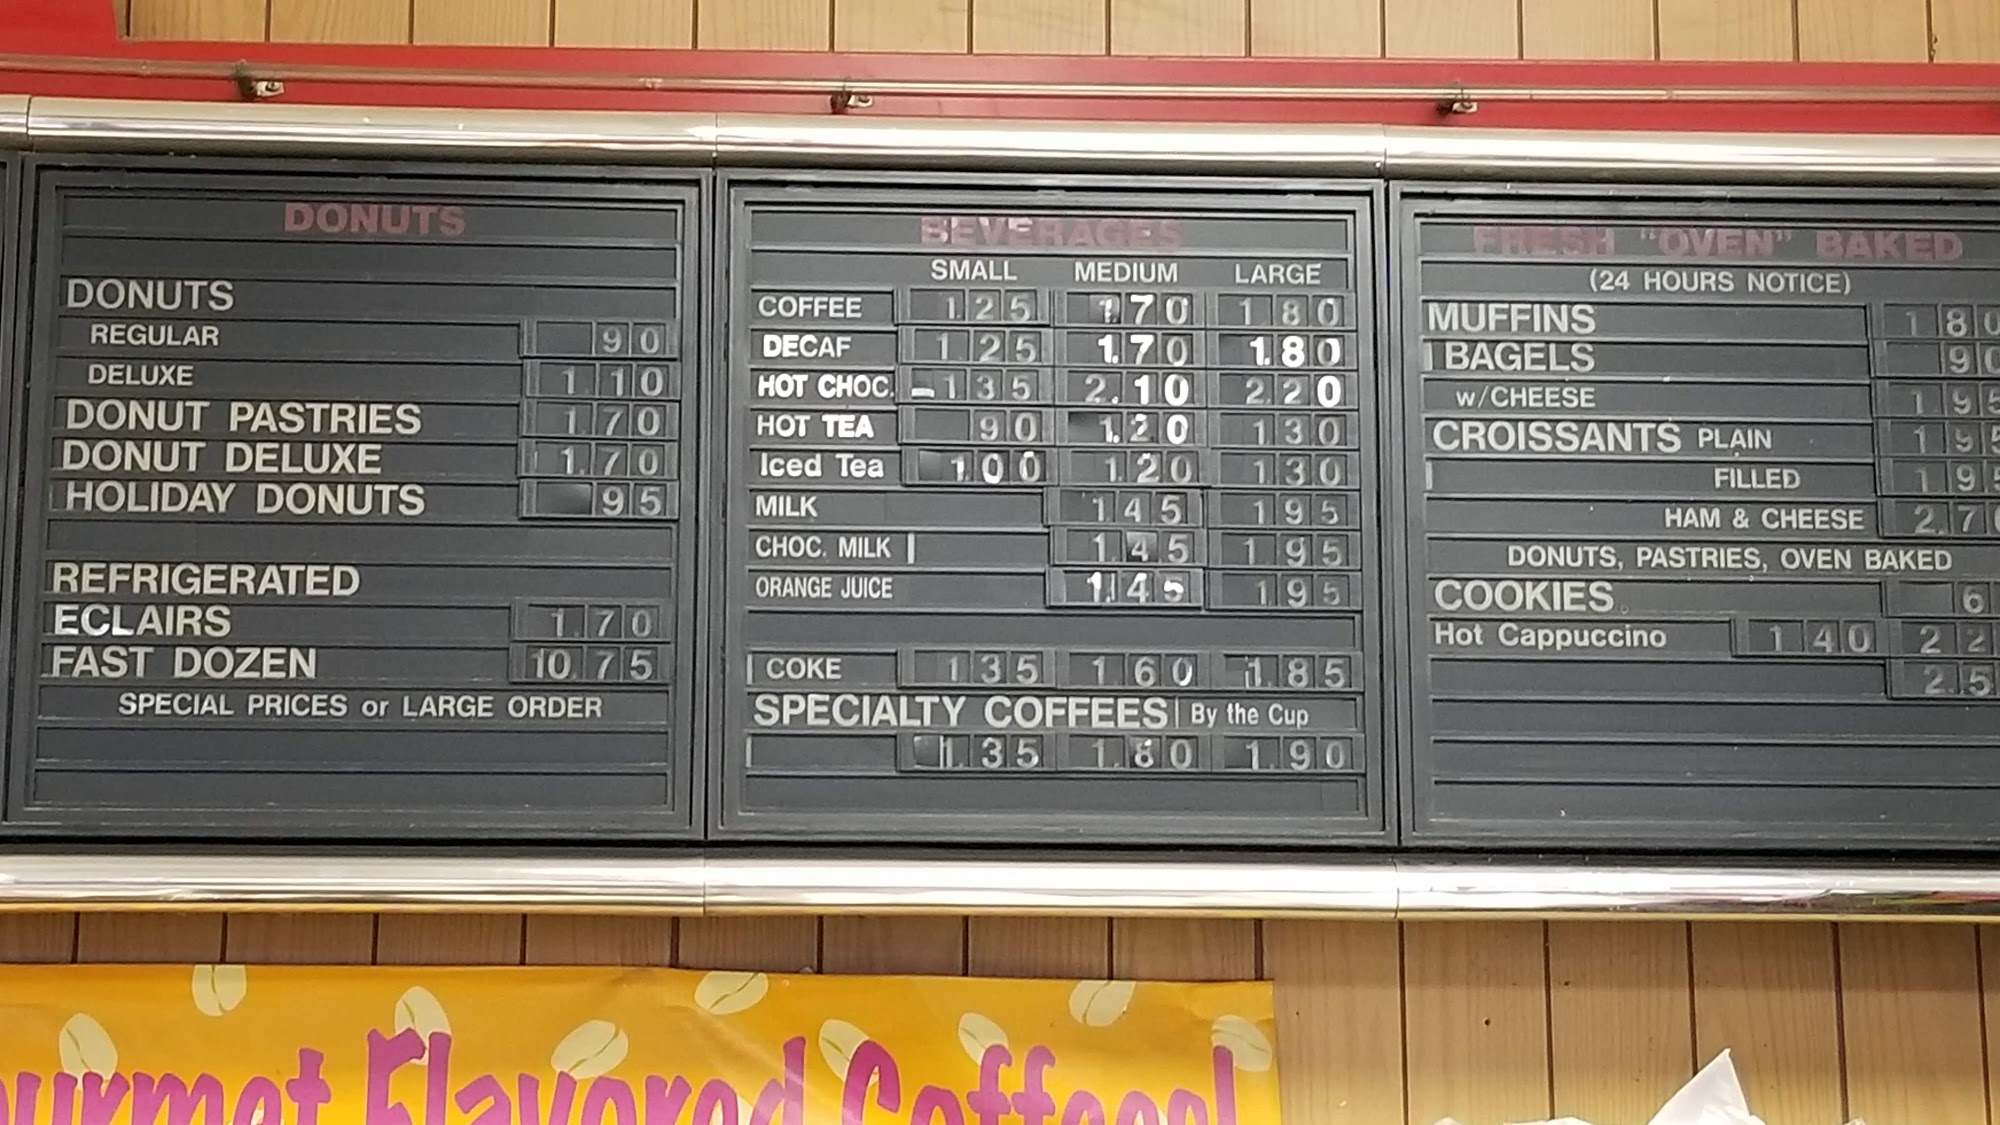 DONUTS
DONUTS
REGULAR 90
DELUXE 1.10
DONUT PASTRIES 1.70
DONUT DELUXE 1.70
HOLIDAY DONUTS 95
REFRIGERATED
ECLAIRS 1.70
FAST DOZEN 10.75
SPECIAL PRICES or LARGE ORDER
BEVERAGES
SMALL MEDIUM LARGE
COFFEE 1.25 1.70 1 80
DECAF 1 25 1.70 1.80
HOT CHOC. 1 35 2.10 2.20
HOT TEA 90 1.20 1 30
Iced Tea 1.00 1.20 1 30
MILK 1 45 1 95
CHOC. MILK 1.45 1 95
ORANGE JUICE 1.45 1 95
COKE 1 35 1 60 1.85
SPECIALTY COFFEES By the Cup
1.35 1.80 1.90
FRESH "OVEN" BAKED
(24 HOURS NOTICE)
MUFFINS 1 80
BAGELS 90
w/CHEESE 1 95
CROISSANTS PLAIN 1 95
FILLED 1 95
HAM & CHEESE 2.7
DONUTS, PASTRIES, OVEN BAKED
COOKIES 6
Hot Cappuccino 1 40 2 2
2.5
Flavored Coffees!